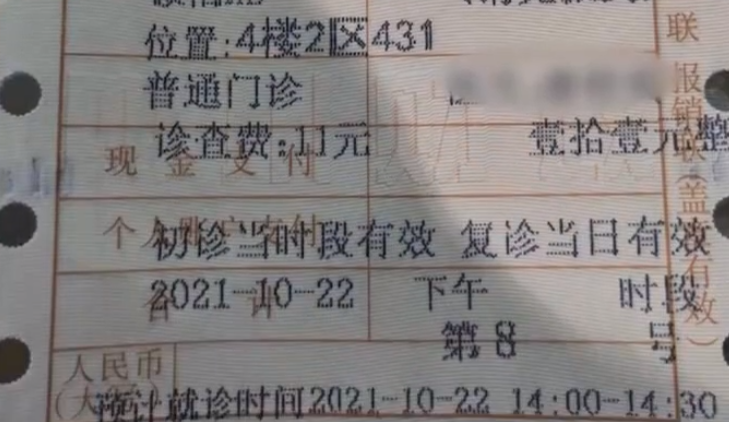 位置:4楼2区431
普通门诊
诊查费:11元 壹拾壹元整
现金支付
初诊当时段有效 复诊当日有效
个人账户支付
2021-10-22 下午 时段
合计
第8号
人民币
(大写)
预计就诊时间2021-10-22 14:00-14:30
联 报销联(盖 有效)